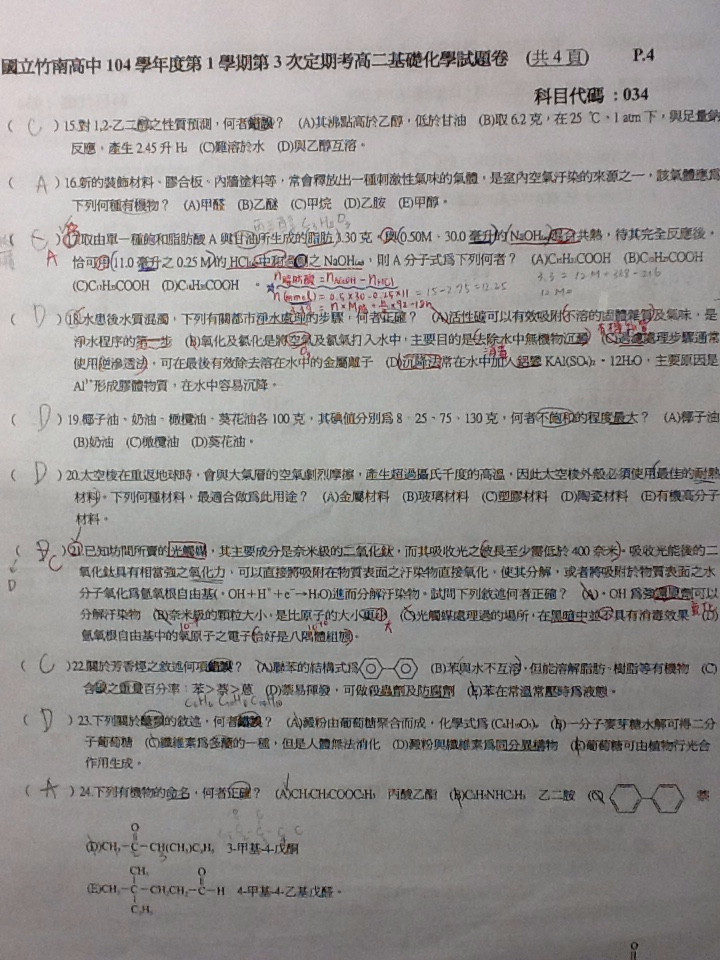 國立竹南高中 104 學年度第 1 學期第 3 次定期考高二基礎化學試題卷 (共 4 頁) P.4
科目代碼：034
( C ) 15.對 1,2-乙二醇之性質預測，何者錯誤？ (A)其沸點高於乙醇，低於甘油 (B)取 6.2 克，在 25 ℃、1 atm 下，與足量鈉
反應，產生 2.45 升 H₂ (C)難溶於水 (D)與乙醇互溶。
( A ) 16.新的裝飾材料、膠合板、內牆塗料等，常會釋放出一種刺激性氣味的氣體，是室內空氣汙染的來源之一，該氣體應為
下列何種有機物？ (A)甲醛 (B)乙醚 (C)甲烷 (D)乙胺 (E)甲醇。
丙三醇 C₃H₈O₃
A 17.取由單一種飽和脂肪酸 A 與甘油所生成的脂肪 3.30 克，與 0.50M、30.0 毫升的 NaOH 混合共熱，待其完全反應後，
恰可用 11.0 毫升之 0.25 M 的 HCl 中和過量之 NaOH，則 A 分子式為下列何者？ (A)
(C) (D) n脂肪酸 = nNaOH − nHCl
n(mmol) = 0.5×30-0.25×11 = 15-2.75=12.25
( D ) 18.水患後水質混濁，下列有關都市淨水處理的步驟，何者正確？ (A)活性碳可以有效吸附不溶的固體雜質及氣味，是
淨水程序的第一步 (B)氧化及氯化是將空氣及氯氣打入水中，主要目的是去除水中無機物沉澱 (C)過濾處理步驟通常
使用逆滲透法，可在最後有效除去溶在水中的金屬離子 (D)沉降法常在水中加入鋁礬 KAl(SO₄)₂・12H₂O，主要原因是
Al³⁺形成膠體物質，在水中容易沉降。
( D ) 19.椰子油、奶油、橄欖油、葵花油各 100 克，其碘值分別為 8、25、75、130 克，何者不飽和的程度最大？ (A)椰子油
(B)奶油 (C)橄欖油 (D)葵花油。
( D ) 20.太空梭在重返地球時，會與大氣層的空氣劇烈摩擦，產生超過攝氏千度的高溫，因此太空梭外殼必須使用最佳的耐熱
材料。下列何種材料，最適合做為此用途？ (A)金屬材料 (B)玻璃材料 (C)塑膠材料 (D)陶瓷材料 (E)有機高分子
材料。
C 21.已知坊間所賣的光觸媒，其主要成分是奈米級的二氧化鈦，而其吸收光之波長至少需低於 400 奈米。吸收光能後的二
氧化鈦具有相當強之氧化力，可以直接將吸附在物質表面之汙染物直接氧化，使其分解，或者將吸附於物質表面之水
D 分子氧化為氫氧根自由基(・OH + H⁺ + e⁻→H₂O)進而分解汙染物。試問下列敘述何者正確？ (A)・OH 為強還原劑可以
分解汙染物 (B)奈米級的顆粒大小，是比原子的大小更小 大 (C)光觸媒處理過的場所，在黑暗中並不具有消毒效果 (D)
氫氧根自由基中的氧原子之電子恰好是八隅體組態。
( C ) 22.關於芳香烴之敘述何項錯誤？ (A)聯苯的結構式為 (B)苯與水不互溶，但能溶解脂肪、樹脂等有機物 (C)
含碳之重量百分率：苯＞萘＞蒽 (D)萘易揮發，可做殺蟲劑及防腐劑 (E)苯在常溫常壓時為液態。
C₆H₆ C₁₀H₈ C₁₄H₁₀
( D ) 23.下列關於醣類的敘述，何者錯誤？ (A)澱粉由葡萄糖聚合而成，化學式為 (C₆H₁₀O₅)ₙ (B)一分子麥芽糖水解可得二分
子葡萄糖 (C)纖維素為多醣的一種，但是人體無法消化 (D)澱粉與纖維素為同分異構物 (E)葡萄糖可由植物行光合
作用生成。
( A ) 24.下列有機物的命名，何者正確？ (A)CH₃CH₂COOC₂H₅ 丙酸乙酯 (B)C₂H₅NHC₂H₅ 乙二胺 (C) 萘
O
(D)CH₃－C－CH(CH₃)C₂H₅ 3-甲基-4-戊酮
CH₃ O
(E)CH₃－C－CH₂CH₂－C－H 4-甲基-4-乙基戊醛。
C₂H₅
O